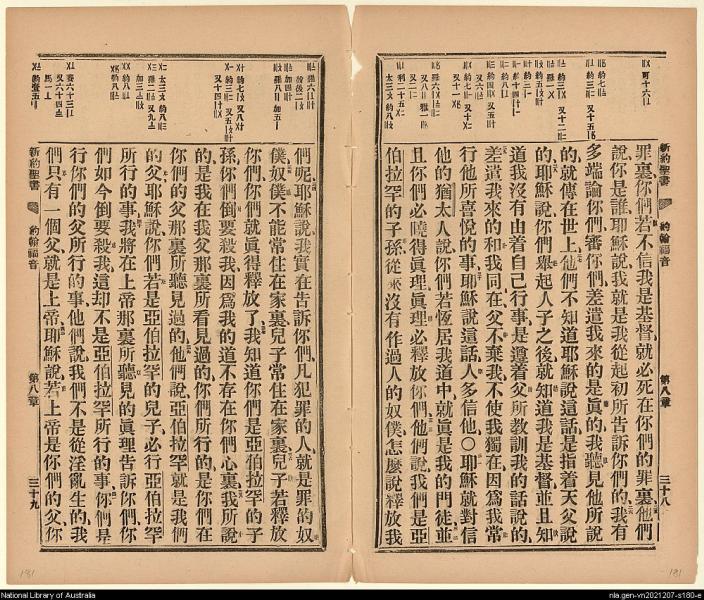 新約聖書
約翰福音
第八章
三十八
罪裏、你們若不信我是基督、就必死在你們的罪裏、他們
說、你是誰、耶穌說、我就是我從起初所告訴你們的、我有
多端論你們審你們、差遣我來的是眞的、我聽見他所說
的、就傳在世上、他們不知道耶穌說這話、是指着天父說
的、耶穌說、你們舉起人子之後、就知道我是基督、並且知
道我沒有由着自己行事、是遵着父所教訓我的話說的、
差遣我來的和我同在、父不棄我、不使我獨在、因爲我常
行他所喜悅的事、耶穌說這話、人多信他、〇耶穌就對信
他的猶太人說、你們若恆居我道中、就眞是我的門徒、並
且你們必曉得眞理、眞理必釋放你們、他們說、我們是亞
伯拉罕的子孫、從來沒有作過人的奴僕、怎麼說釋放我
新約聖書
約翰福音
第八章
三十九
們呢、耶穌說、我實在告訴你們、凡犯罪的人、就是罪的奴
僕、奴僕不能常住在家裏、兒子常住在家裏、兒子若釋放
你們、你們就眞得釋放了、我知道你們是亞伯拉罕的子
孫、你們倒要殺我、因爲我的道不存在你們心裏、我所說
的、是我在我父那裏所看見過的、你們所行的、是你們在
你們的父那裏所聽見過的、他們說、亞伯拉罕就是我們
的父、耶穌說、你們若是亞伯拉罕的兒子、必行亞伯拉罕
所行的事、我將在上帝那裏所聽見的眞理告訴你們、你
們如今倒要殺我、這却不是亞伯拉罕所行的事、你們是
行你們的父所行的事、他們說、我們不是從淫亂生的、我
們只有一個父、就是上帝、耶穌說、若上帝是你們的父、你
181
181
National Library of Australia
nla.gen-vn2021207-s180-e